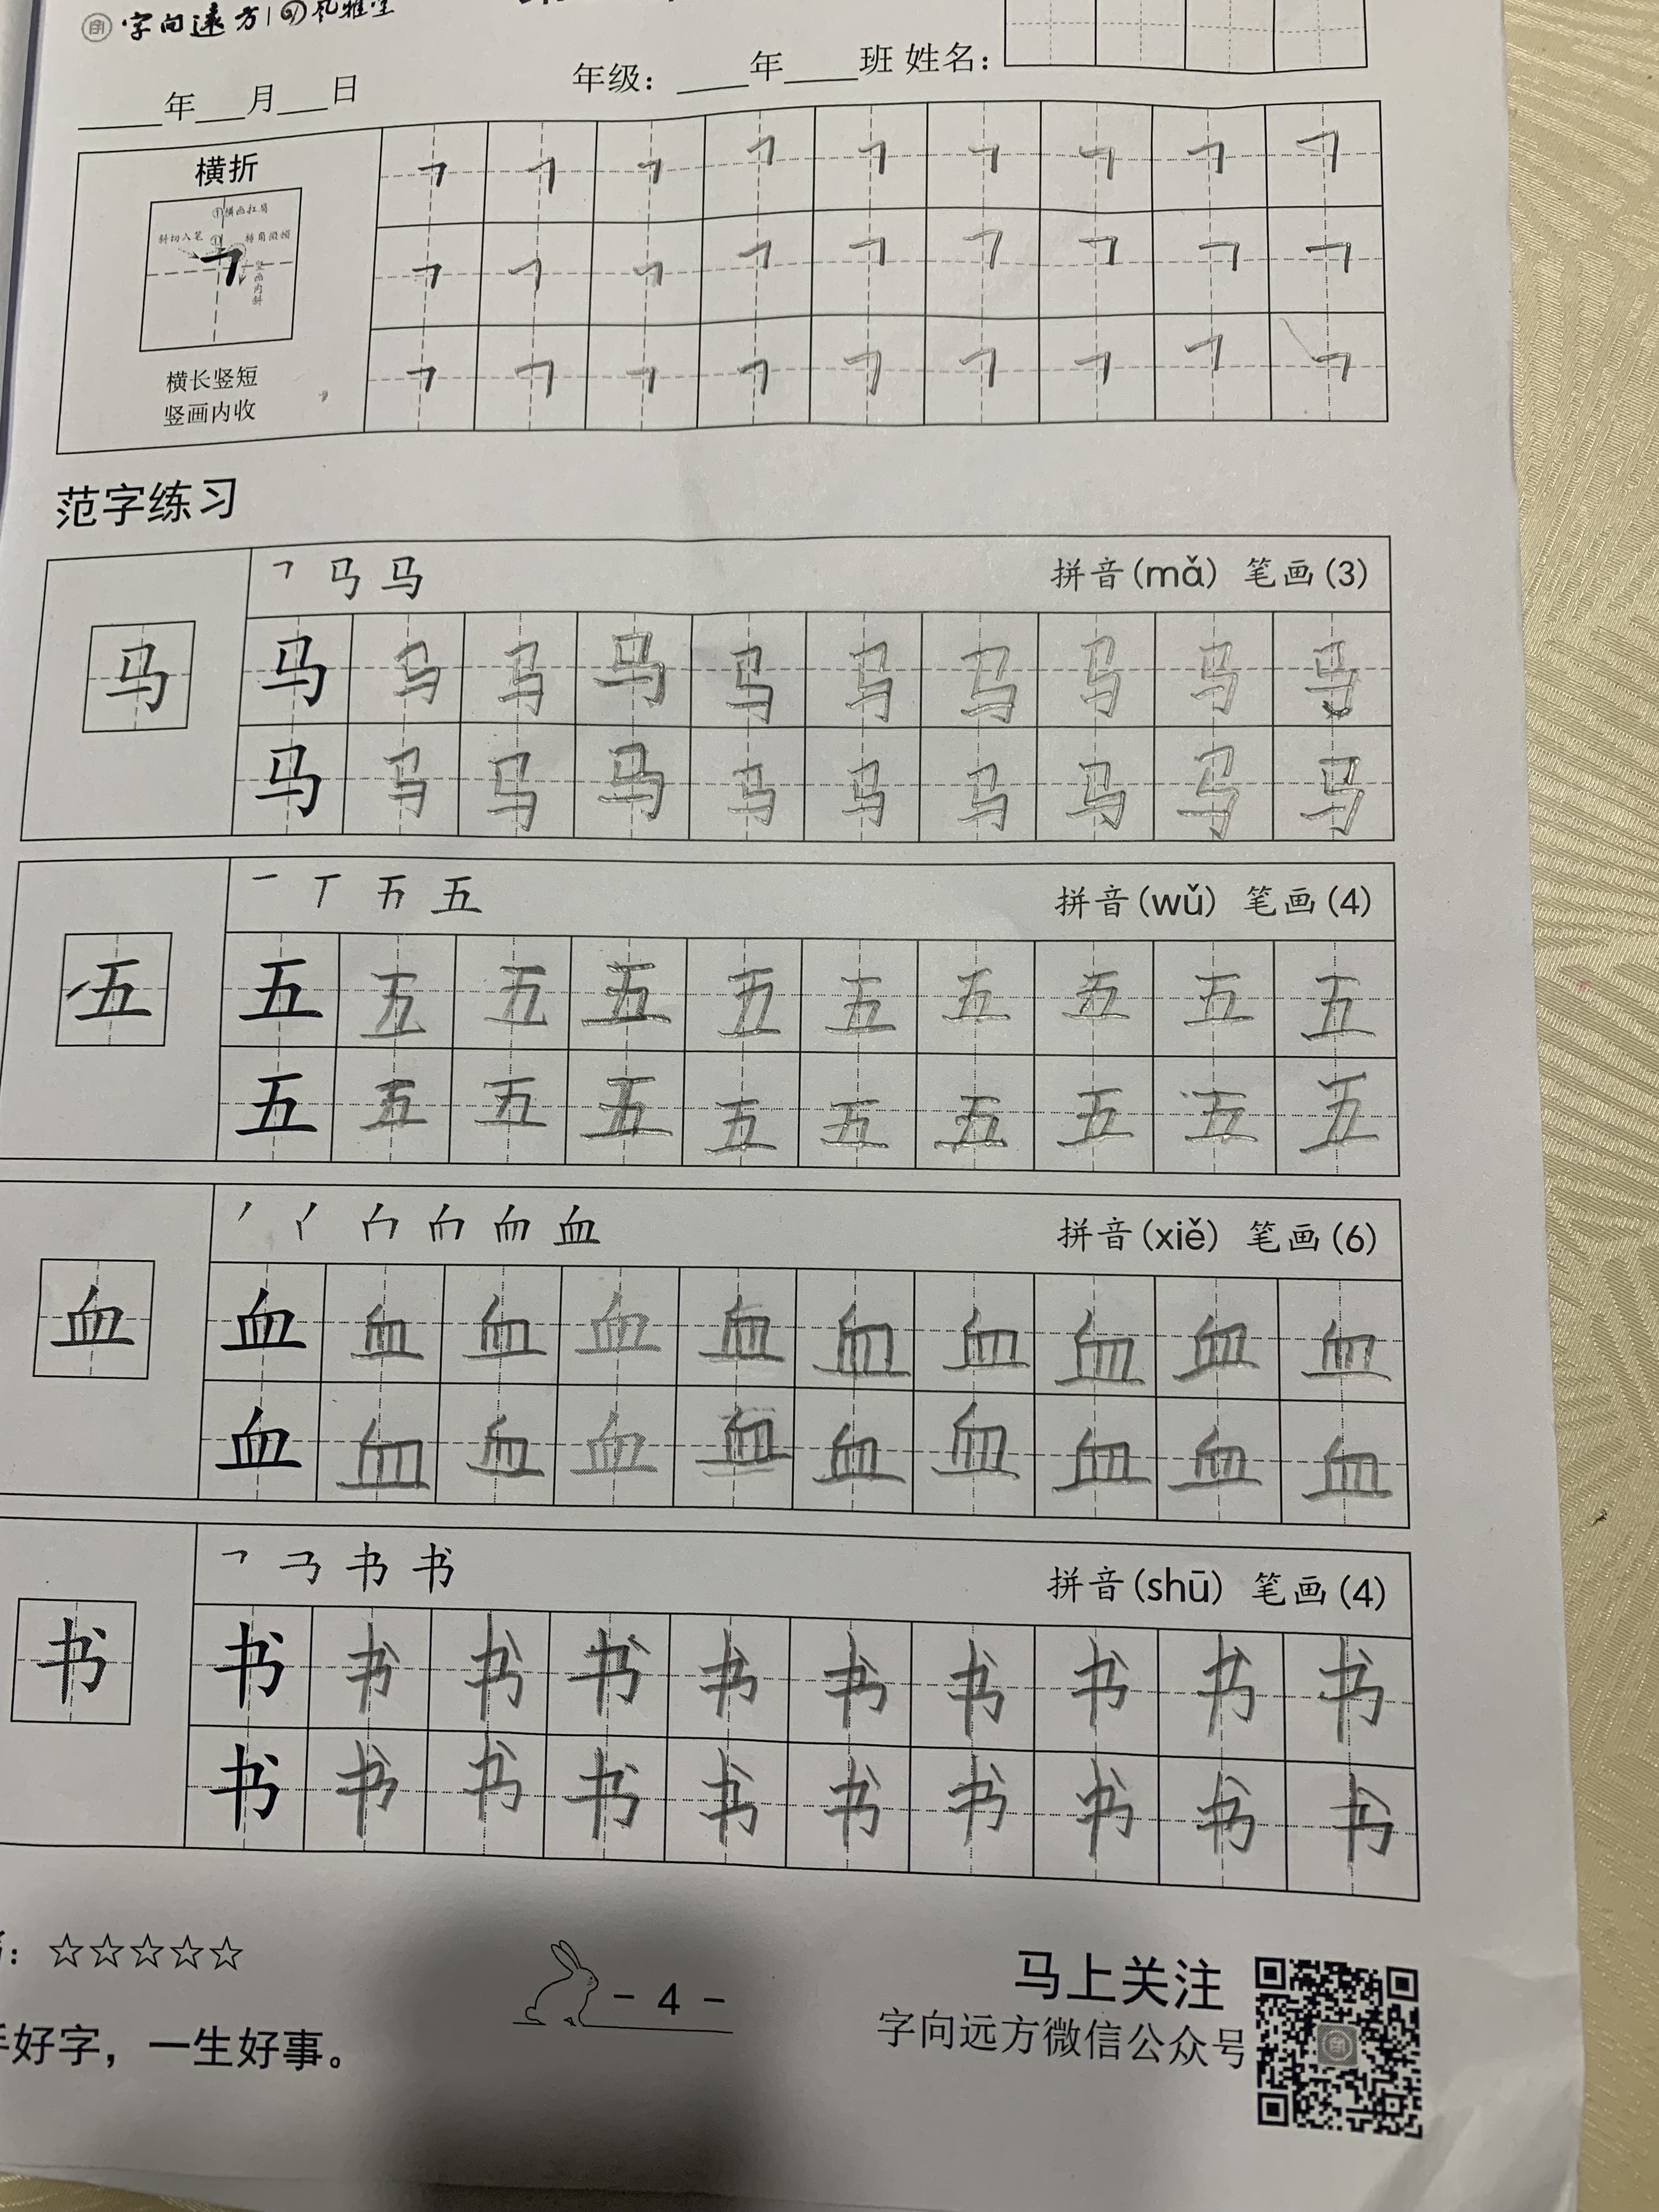 字向远方 风雅堂
年 月 日 年级： 年 班 姓名：
横折
①横画扛肩
斜切入笔 ① 转角微顿
竖画内斜
横长竖短
竖画内收
范字练习
㇕ 马 拼音(mǎ) 笔画(3)
马 马 马 马 马 马 马 马 马 马 马
马 马 马 马 马 马 马 马 马 马
一 丅 五 拼音(wǔ) 笔画(4)
五 五 五 五 五 五 五 五 五 五 五
五 五 五 五 五 五 五 五 五 五
丿 血 拼音(xiě) 笔画(6)
血 血 血 血 血 血 血 血 血 血 血
血 血 血 血 血 血 血 血 血 血
㇕ 书 拼音(shū) 笔画(4)
书 书 书 书 书 书 书 书 书 书 书
书 书 书 书 书 书 书 书 书 书
：☆☆☆☆☆
- 4 -
马上关注
字向远方微信公众号
好字，一生好事。